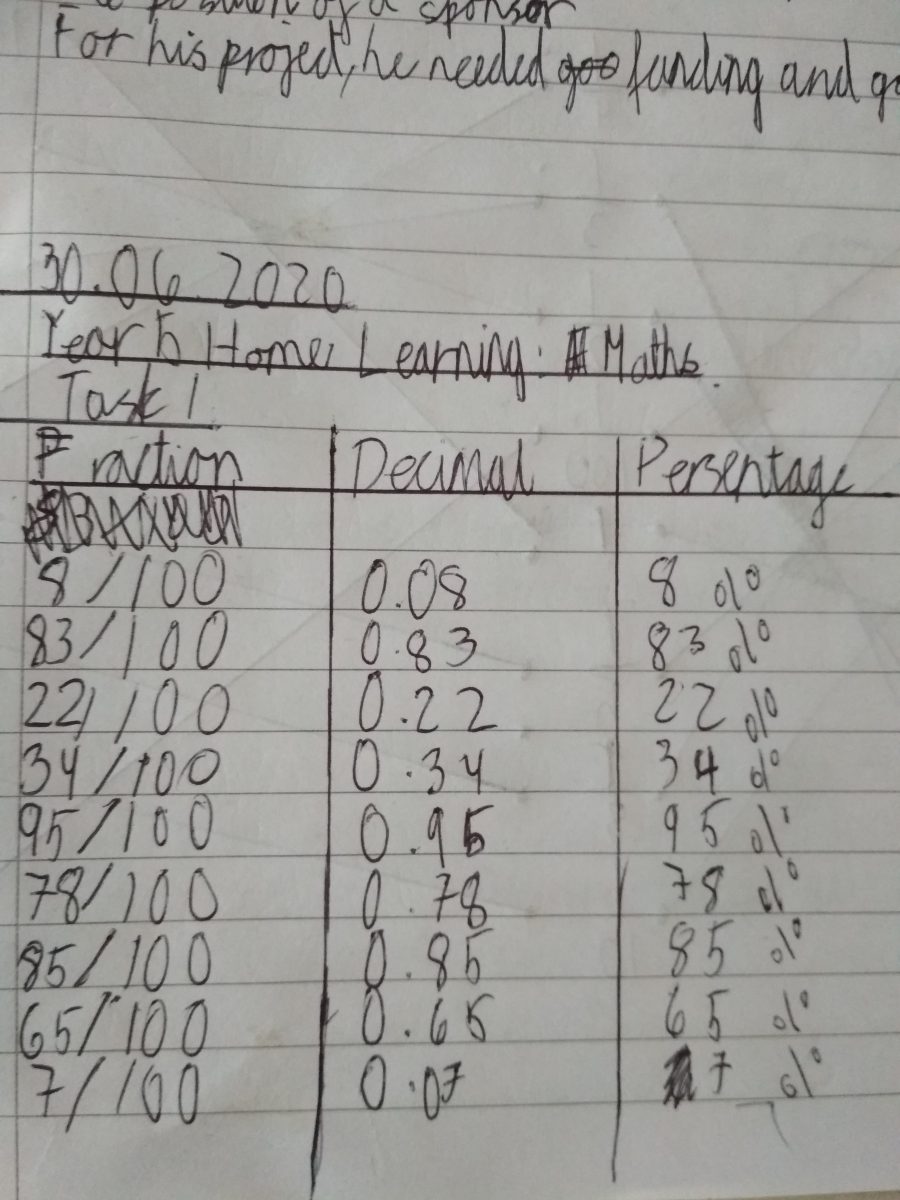 position of a sponsor
For his project, he needed goo funding and go
30.06.2020
Year 5 Home Learning: Maths.
Task 1
Fraction Decimal Persentage
8/100 0.08 8 %
83/100 0.83 83 %
22/100 0.22 22 %
34/100 0.34 34 %
95/100 0.95 95 %
78/100 0.78 78 %
85/100 0.85 85 %
65/100 0.65 65 %
7/100 0.07 7 %